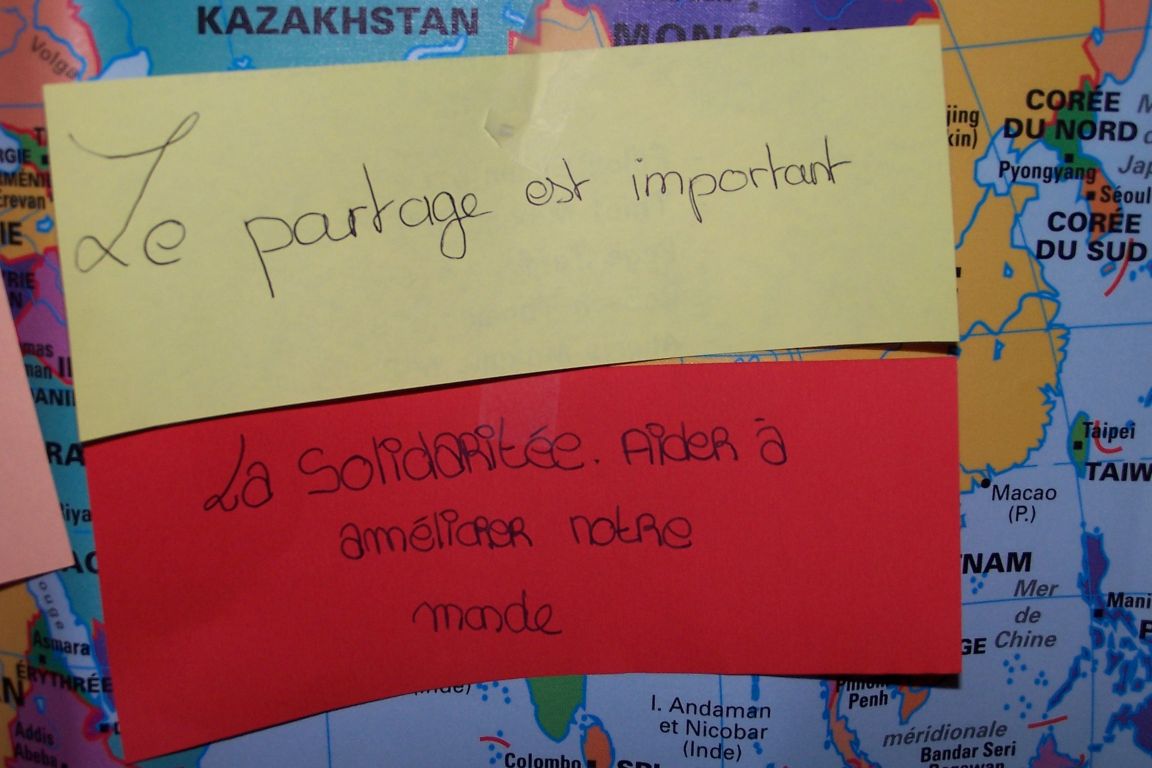 KAZAKHSTAN
Volga
Le partage est important
La Solidaritée. Aider à
améliorer notre
monde
CORÉE
DU NORD
Pyongyang
Séoul
CORÉE
DU SUD
Taipei
Macao
(P.)
Mer
de
Chine
Asmara
ÉRYTHRÉE
Addis
Abeba
I. Andaman
et Nicobar
(Inde)
Colombo
Penh
méridionale
Bandar Seri